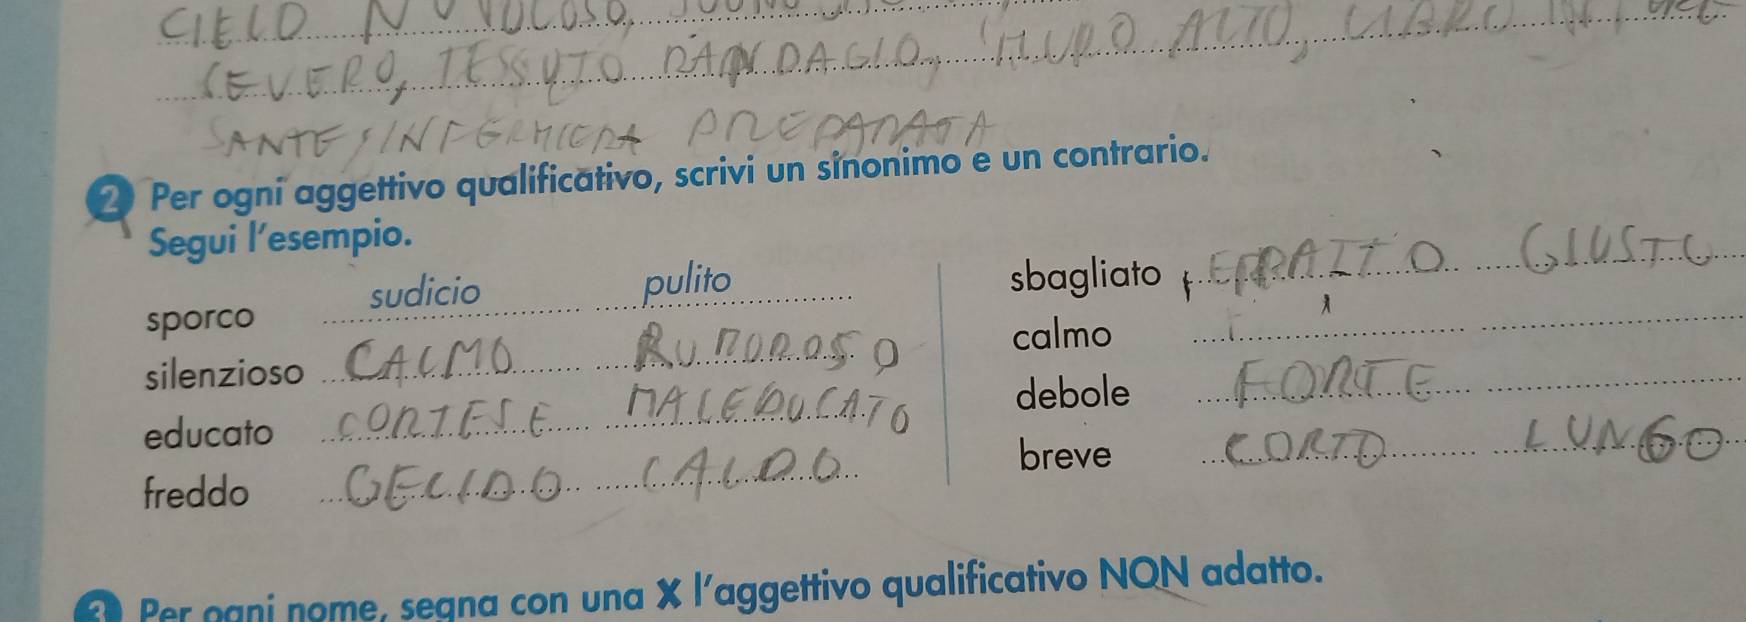 CIELO NUVOLOSO,
SEVERO, TESSUTO MURO ALTO,
SANTE, INFERMIERA PREPARATA
2 Per ogni aggettivo qualificativo, scrivi un sinonimo e un contrario.
Segui l'esempio.
sporco sudicio pulito
silenzioso CALMO RUMOROSO
educato CORTESE MALEDUCATO
freddo GELIDO CALDO
sbagliato ERRATTO GIUSTO
calmo
debole FORTE
breve CORTO LUNGO
3 Per ogni nome, segna con una X l'aggettivo qualificativo NON adatto.